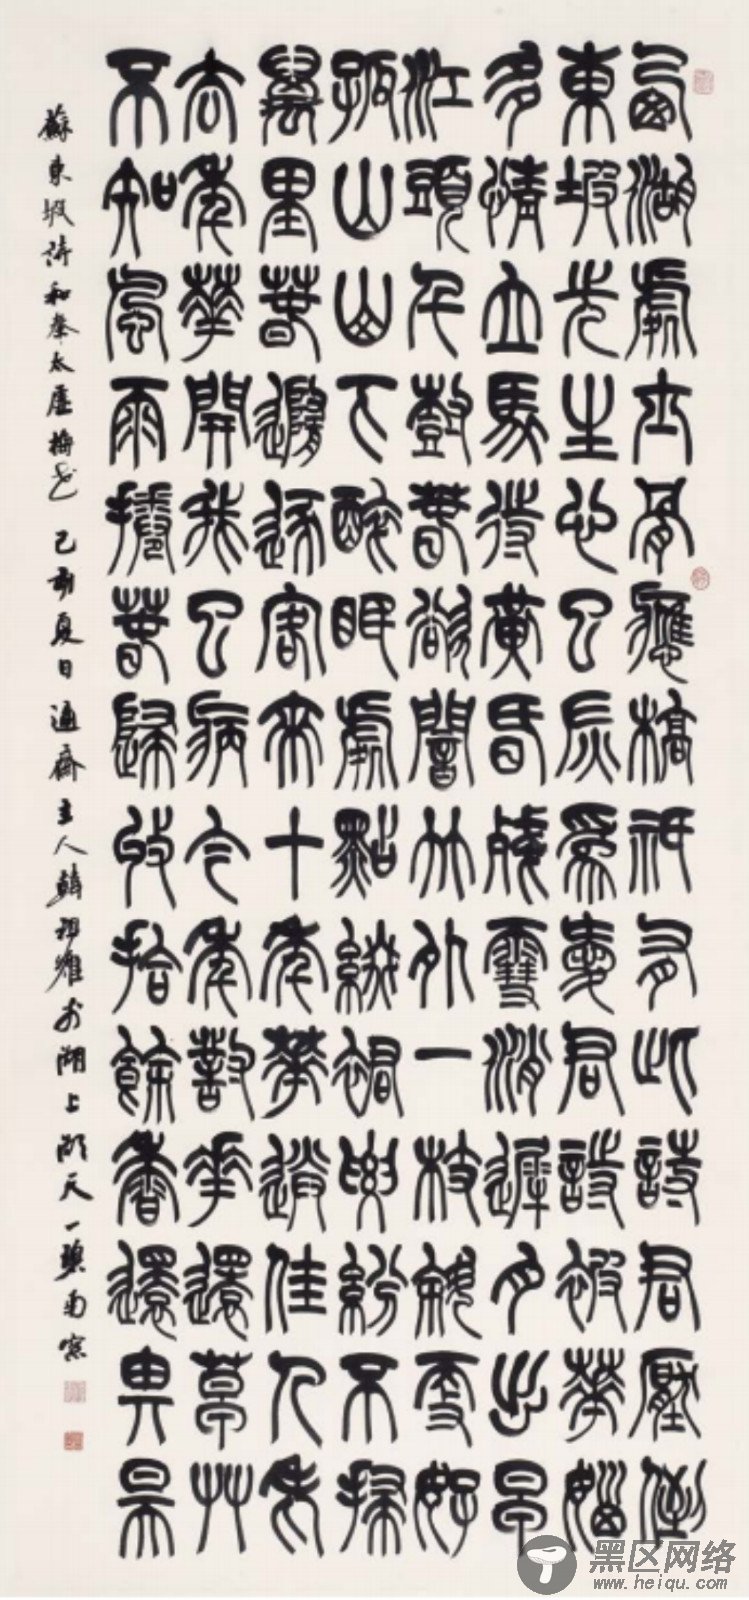 西湖處士骨應槁祇有此詩君壓倒
東坡先生心已灰為愛君詩被華惱
多情立馬待黃昏殘雪消遲月出早
江頭千樹春欲闇竹外一枝斜更好
孤山山下醉眠處點綴裙腰紛不掃
萬里春隨逐客來十年華送佳人老
去年華開我已病今年對華還草草
不知風雨捲春歸收拾餘香還畀昊
蘇東坡詩和秦太虛梅花 己亥夏日 齋主人韓 於湖上湖天一碧南窗
黑区网络
www.heiqu.com